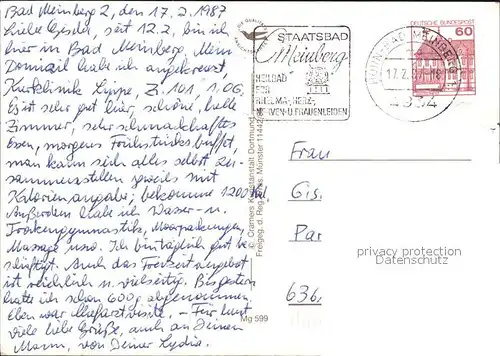 Bad Meinberg 2, den 17.2.1987
Liebe Gisela, seit 12.2. bin ich
hier in Bad Meinberg. Mein
Domizil habe ich angekreuzt
Kurklinik Lippe, Z. 101, 1.OG.
Es ist sehr gut hier, schöne, helle
Zimmer, sehr schmackhaftes
Essen, morgens Frühstücksbuffet,
man kann sich alles selbst zu-
sammenstellen jeweils mit
Kalorienangabe; bekomme 1200 Kal.
Außerdem habe ich Wasser- u.
Trockengymnastik, Moorpackungen,
Massage usw. Ich bin täglich gut be-
schäftigt. Auch das Freizeitangebot
ist reichlich u. vielseitig. Bis gestern
hatte ich schon 600 g abgenommen.
Eben war Chefarztvisite. - Für heut
viele liebe Grüße, auch an Deinen
Mann, von Deiner Lydia.
© Cramers Kunstanstalt Dortmund
Freigeg. d. Reg. Präs. Münster 11442
Mg 599
STAATSBAD
Meinberg
HEILBAD
FÜR
RHEUMA-, HERZ-,
NERVEN- U. FRAUENLEIDEN
HORN-BAD MEINBERG
17.2.87-18
4934
DEUTSCHE BUNDESPOST
60
Frau
Gis.
Par
636.
privacy protection
Datenschutz